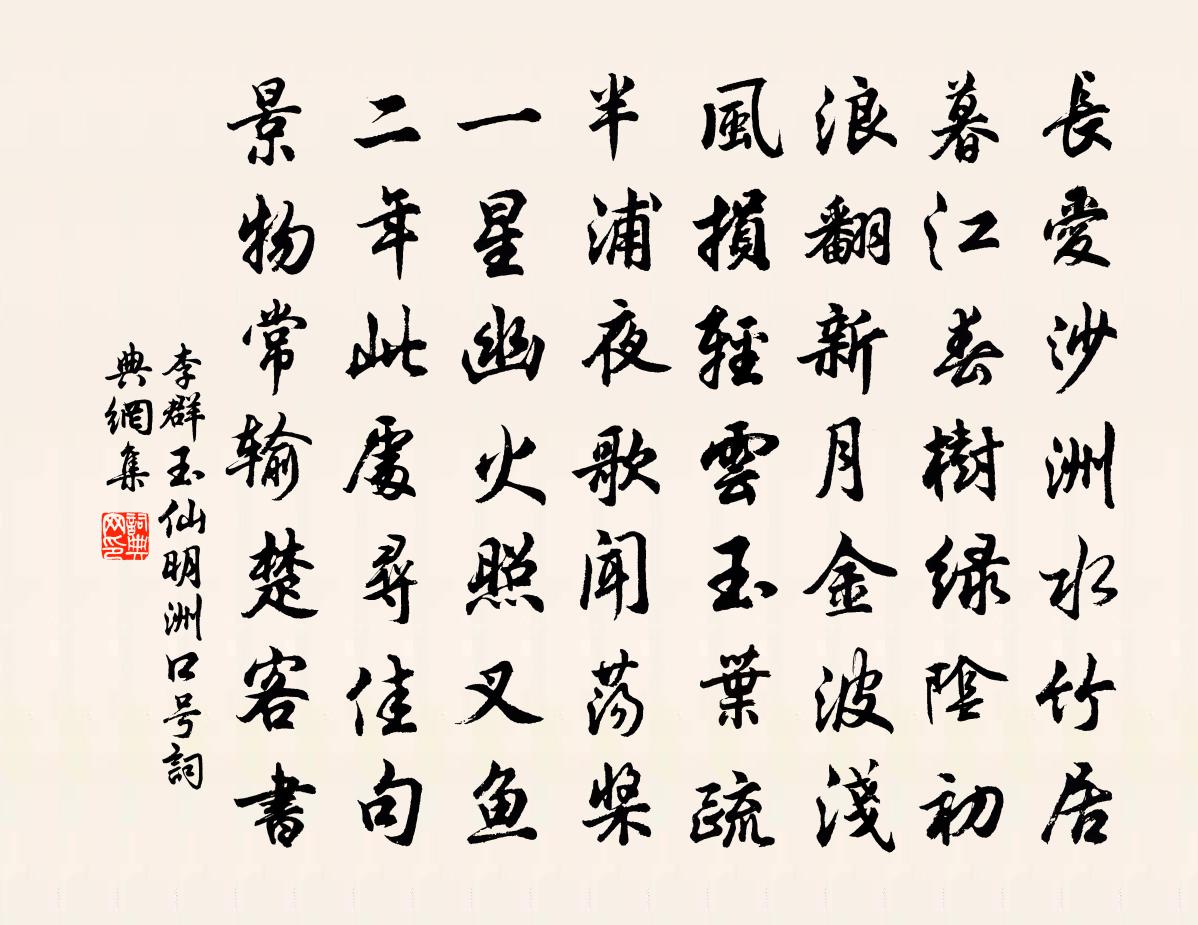 長愛沙洲水竹居
暮江春樹緑陰初
浪翻新月金波淺
風損輕雲玉葉疏
半浦夜歌聞荡槳
一星幽火照叉鱼
二年此處尋佳句
景物常输楚客書
李群玉仙明洲口号詞
典網集
詞典
网印